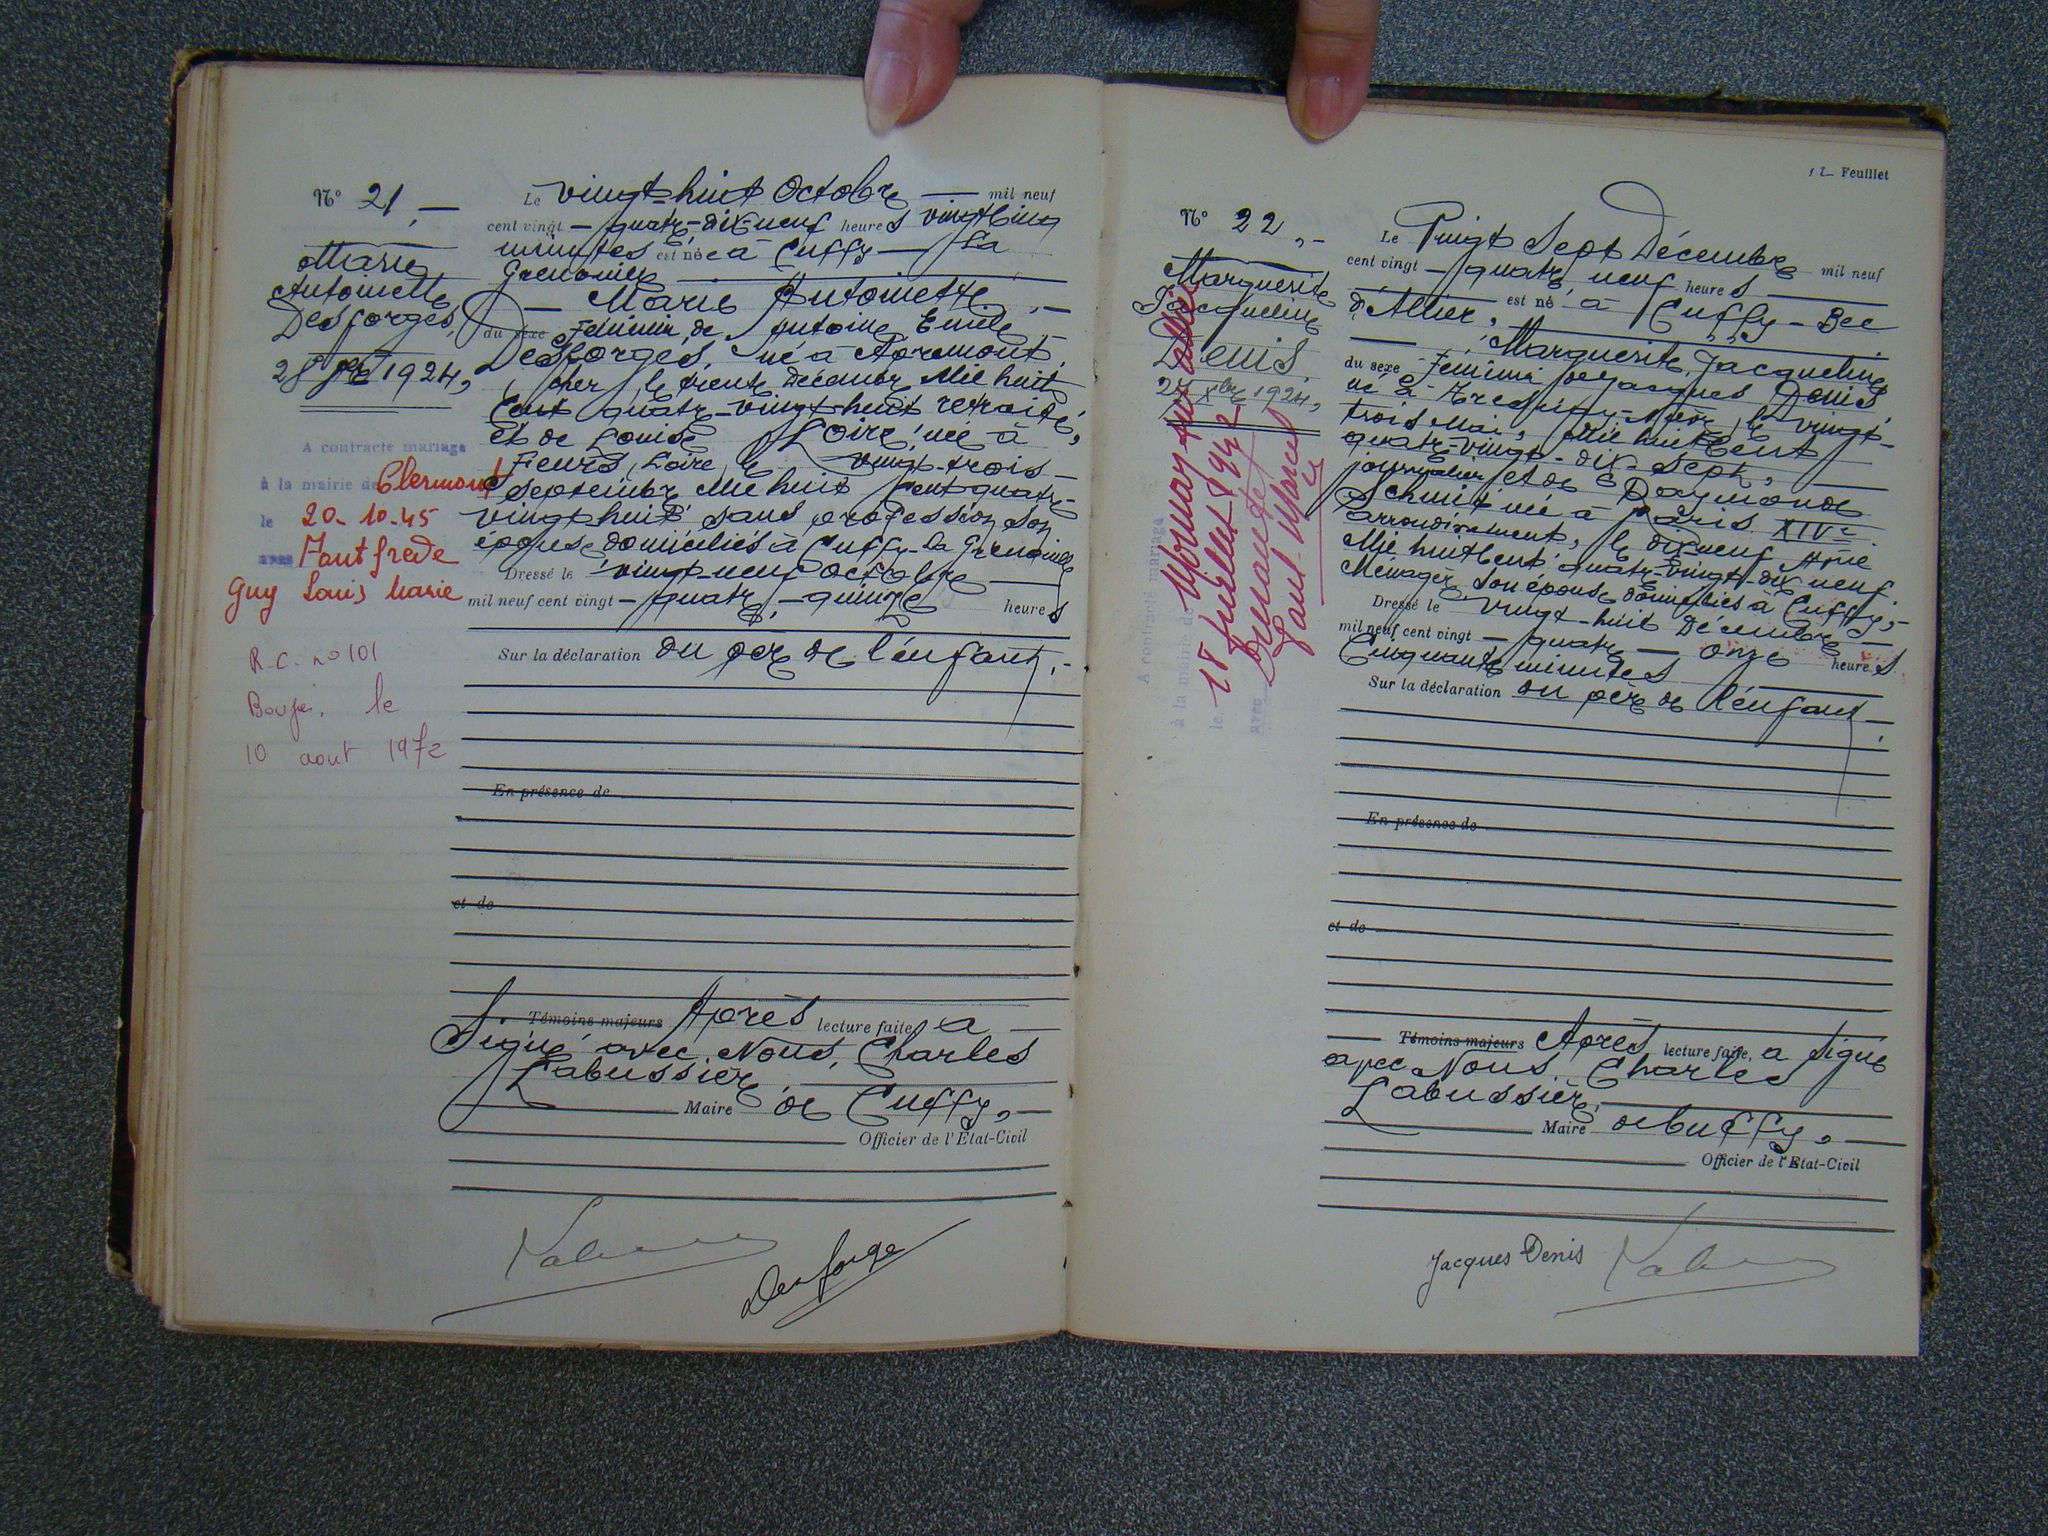 N° 21, —
Marie
Antoinette
Desforges,
28 8bre 1924,
A contracté mariage
à la mairie de Clermont
le 20-10-45
avec
Guy Louis Marie
R.C. n° 101
le
10 aout 1972
Le vingt-huit Octobre — mil neuf
cent vingt — quatre — dix-neuf heures vingt-cinq
minutes est née à Cuffy — La
Grenouille
— Marie Antoinette, —
du sexe Féminin, de Antoine Emile
Desforges, né à Apremont,
Cher, le trente Décembre Mil huit
Cent quatre-vingt-huit retraité,
et de Louise Loire née à
Feurs, Loire, le vingt-trois
Septembre Mil huit Cent quatre-
vingt-huit sans profession son
épouse domiciliés à Cuffy-La Grenouille
Dressé le vingt-neuf octobre
mil neuf cent vingt — quatre, — quinze heures
Sur la déclaration du père de l'enfant, —
En présence de
et de
Témoins majeurs Après lecture faite, a
Signé avec Nous, Charles
Labussière,
Maire de Cuffy, —
Officier de l'État-Civil
Desforge
12 Feuillet
N° 22, —
Marguerite
Jacqueline
Denis
27 Xbre 1924,
A contracté mariage
à la mairie de
le 18 juillet 1942
avec
Paul Marcel
Le Vingt Sept Décembre mil neuf
cent vingt — quatre neuf heures
est né à Cuffy — Bec
d'Allier,
Marguerite, Jacqueline
du sexe Féminin de Jacques Denis,
né à le vingt-
trois Mai, Mil huit Cent
quatre-vingt-dix-sept,
journalier et de Raymonde
Schmit née à Paris XIVe
arrondissement, le dix neuf
Mil huit Cent quatre-vingt-dix neuf
Ménagère, son épouse domiciliés à Cuffy, —
Dressé le vingt-huit Décembre
mil neuf cent vingt — quatre — onze heures
Cinquante minutes
Sur la déclaration du père de l'enfant, —
En présence de
et de
Témoins majeurs Après lecture faite, a signé
avec Nous Charles
Labussière,
Maire de Cuffy, —
Officier de l'État-Civil
Jacques Denis